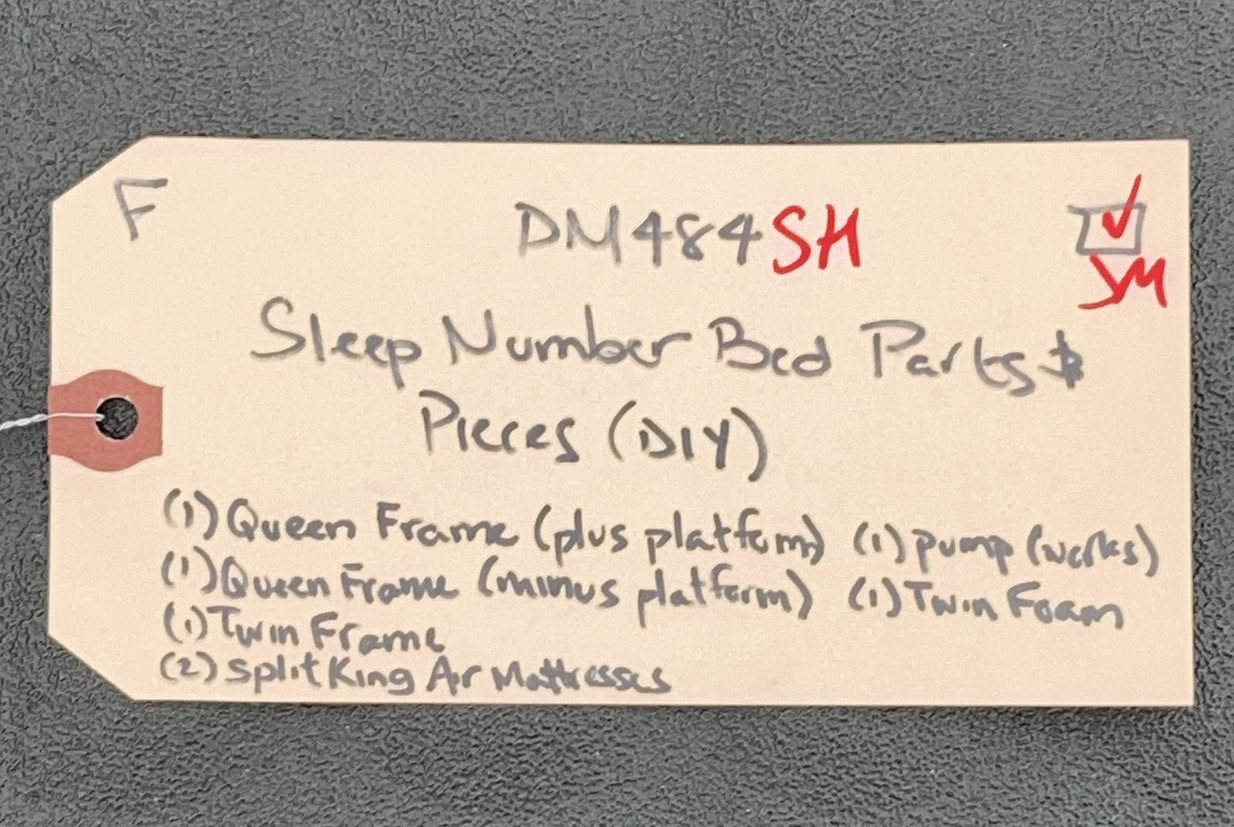 F DM484SH ✓
SM
Sleep Number Bed Parts &
Pieces (DIY)
(1) Queen Frame (plus platform) (1) pump (works)
(1) Queen Frame (minus platform) (1) Twin Foam
(1) Twin Frame
(2) Split King Air Mattresses